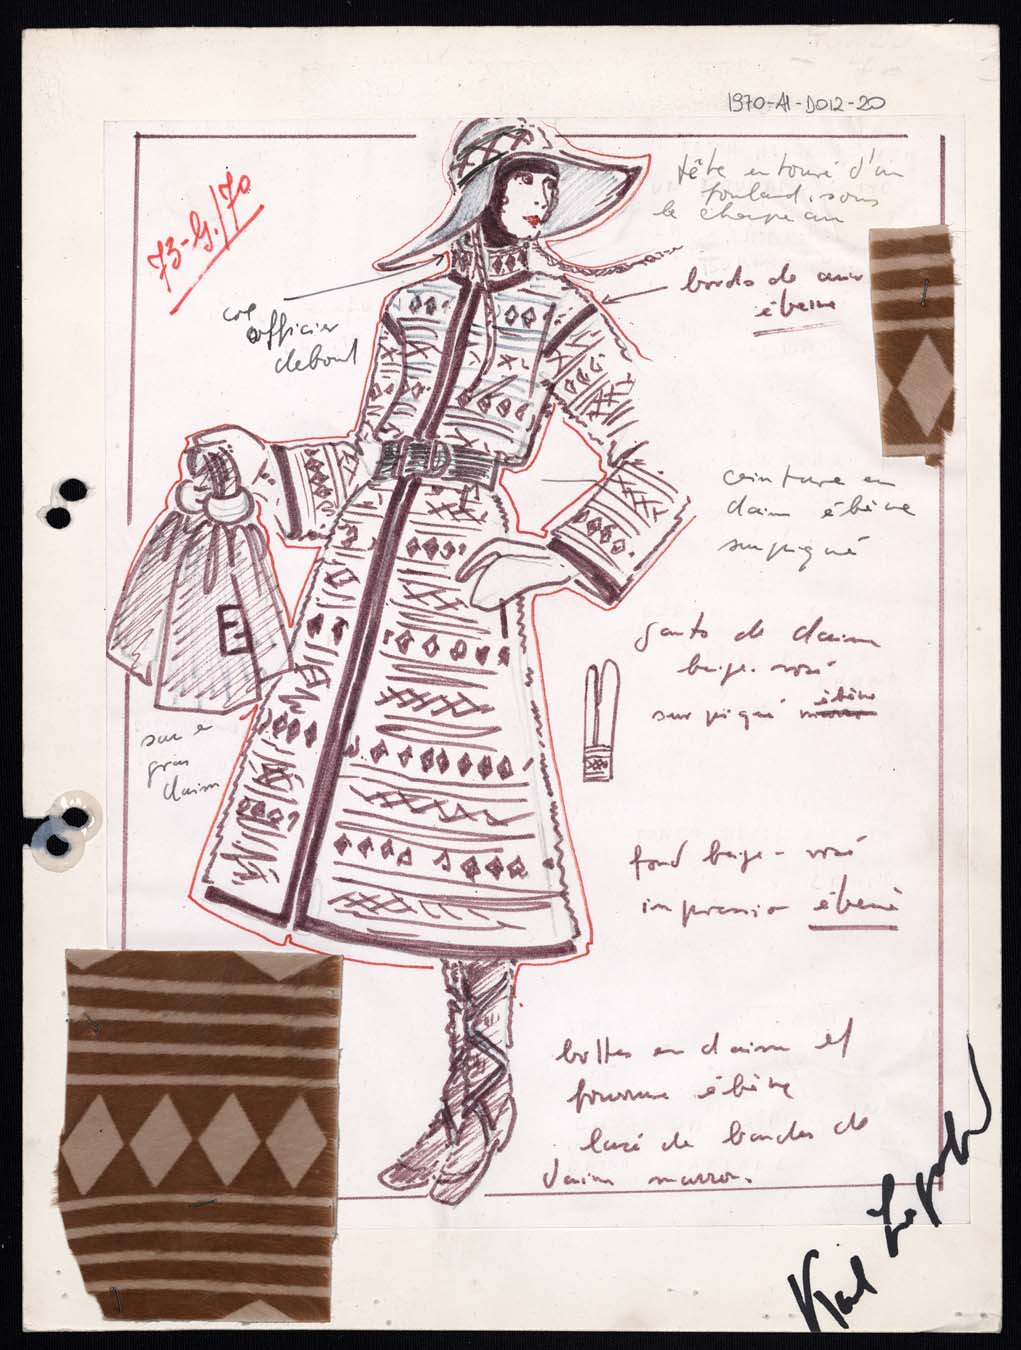 1970-AI-D012-20
73-G./70
tête entouré d'un
foulard sous
le chapeau
bords de cuir
ébène
col
officier
debout
ceinture en
daim ébène
surpiqué
gants de daim
beige-rosé
surpiqué ébène
sac en
gros
daim
fond beige-rosé
impression ébène
bottes en daim et
fourrure ébène
lacé de bandes de
daim marron.
Karl Lagerfeld